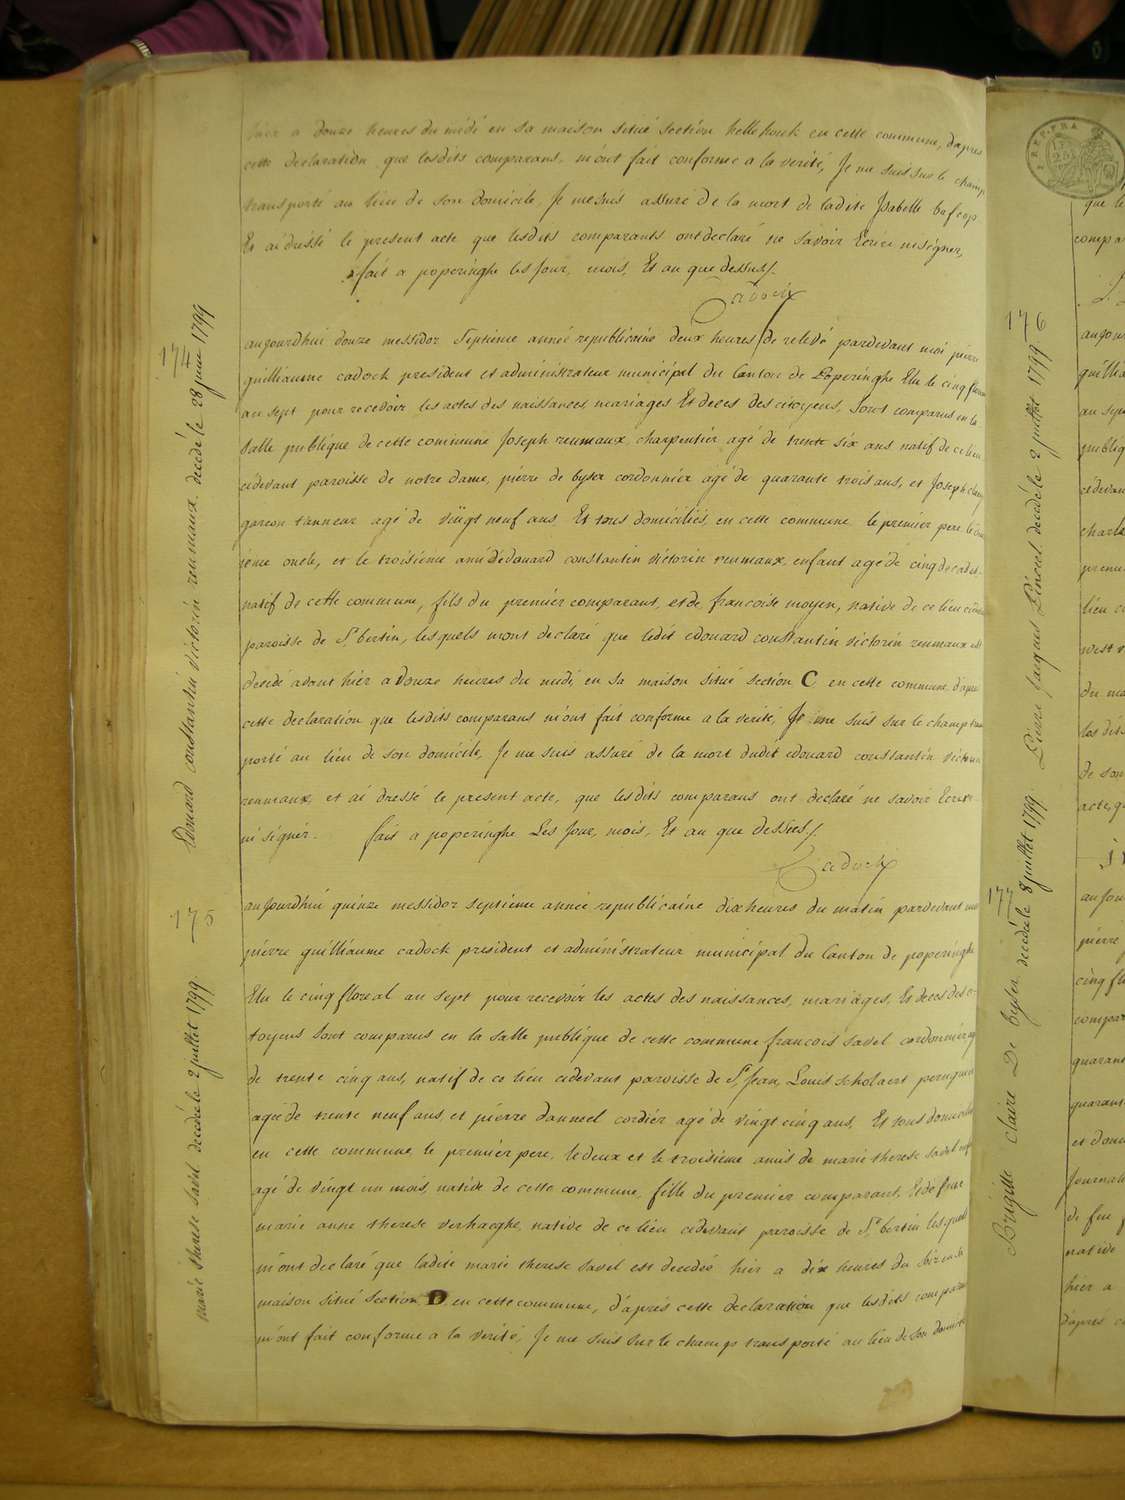 hier a douze heures du midi en sa maison situé section hellehouk en cette commune, dapres
cette declaration que lesdits comparans m'ont fait conforme a la verité, Je me suis sur le champ
transporté au lieu de son domicile, Je me suis assuré de la mort de ladite Isabelle
Et ai dressé le present acte que lesdits comparants ont declaré ne savoir Ecrire ni signer,
fait a poperinghe les Jour, mois, Et an que dessus /.
Cadock
174
Edouard constantin victorin reumaux decédé le 28 juin 1799
aujourdhui douze messidor Septieme année republicaine deux heures de relevé pardevant moi pierre
guilliaume cadock president et administrateur municipal du Canton de Poperinghe Elu le cinq floreal
an sept pour recevoir les actes des naissances, mariages Et deces des citoyens, Sont comparus en la
Salle publique de cette commune Joseph reumaux, charpentier agé de trente six ans natif de ce lieu
cidevant paroisse de notre dame, pierre de byser cordonnier agé de quarante trois ans, et Joseph
garcon tanneur agé de vingt neuf ans, Et tous domiciliés, en cette commune le premier pere, le deux
ieme oncle, et le troisieme ami d'Edouard constantin victorin reumaux enfant agé de cinq
natif de cette commune, fils du premier comparant, et de francoise moyen, native de ce lieu cidevant
paroisse de St bertin, lesquels m'ont declaré que ledit edouard constantin victorin reumaux est
decedé avant hier a Douze heures du midi, en sa maison situé section C en cette commune, d'apres
cette declaration que lesdits comparans m'ont fait conforme a la verité, Je me suis sur le champ trans
porté au lieu de son domicile, Je me suis assuré de la mort dudit edouard constantin victorin
reumaux, et ai dressé le present acte, que lesdits comparans ont declaré ne savoir Ecrire
ni signer. fait a poperinghe Les Jour, mois, Et an que dessus /.
Cadock
175
marie therese savel decédé le 2 juillet 1799
aujourdhui quinze messidor septieme année republicaine dix heures du matin pardevant moi
pierre guilliaume cadock president et administrateur municipal du Canton de poperinghe
Elu le cinq floreal an sept pour recevoir les actes des naissances, mariages, Et deces des ci
toyens Sont comparus en la salle publique de cette commune francois savel cordonnier agé
de trente cinq ans, natif de ce lieu cidevant paroisse de St Jean, Louis scholaert peruquier
agé de trente neuf ans et pierre danneel cordier agé de vingt cinq ans, Et tous domiciliés
en cette commune le premier pere, le deux et le troisieme amis de marie therese savel
agé de vingt un mois, native de cette commune, fille du premier comparant, Et de feue
marie anne therese verhaeghe, native de ce lieu cidevant paroisse de St bertin lesquels
m'ont declaré que ladite marie therese savel est decedée hier a dix heures du soir en sa
maison situé section D en cette commune, d'apres cette declaration que lesdits comparans
m'ont fait conforme a la verité, Je me suis sur le champ transporté au lieu de son domicile
REP. FRA
que le
176
Pierre jacques Pinout decédé le 2 juillet 1799
aujour
guillia
an sep
publiq
cidevan
charle
premi
lieu ci
west v
du ma
les dits
de son
acte, q
177
Brigitte claire De byser decédé le 8 juillet 1799
aujour
pierre
cinq flo
compar
quaran
quarant
et domi
Journali
de feu
native
hier a
d'apres c